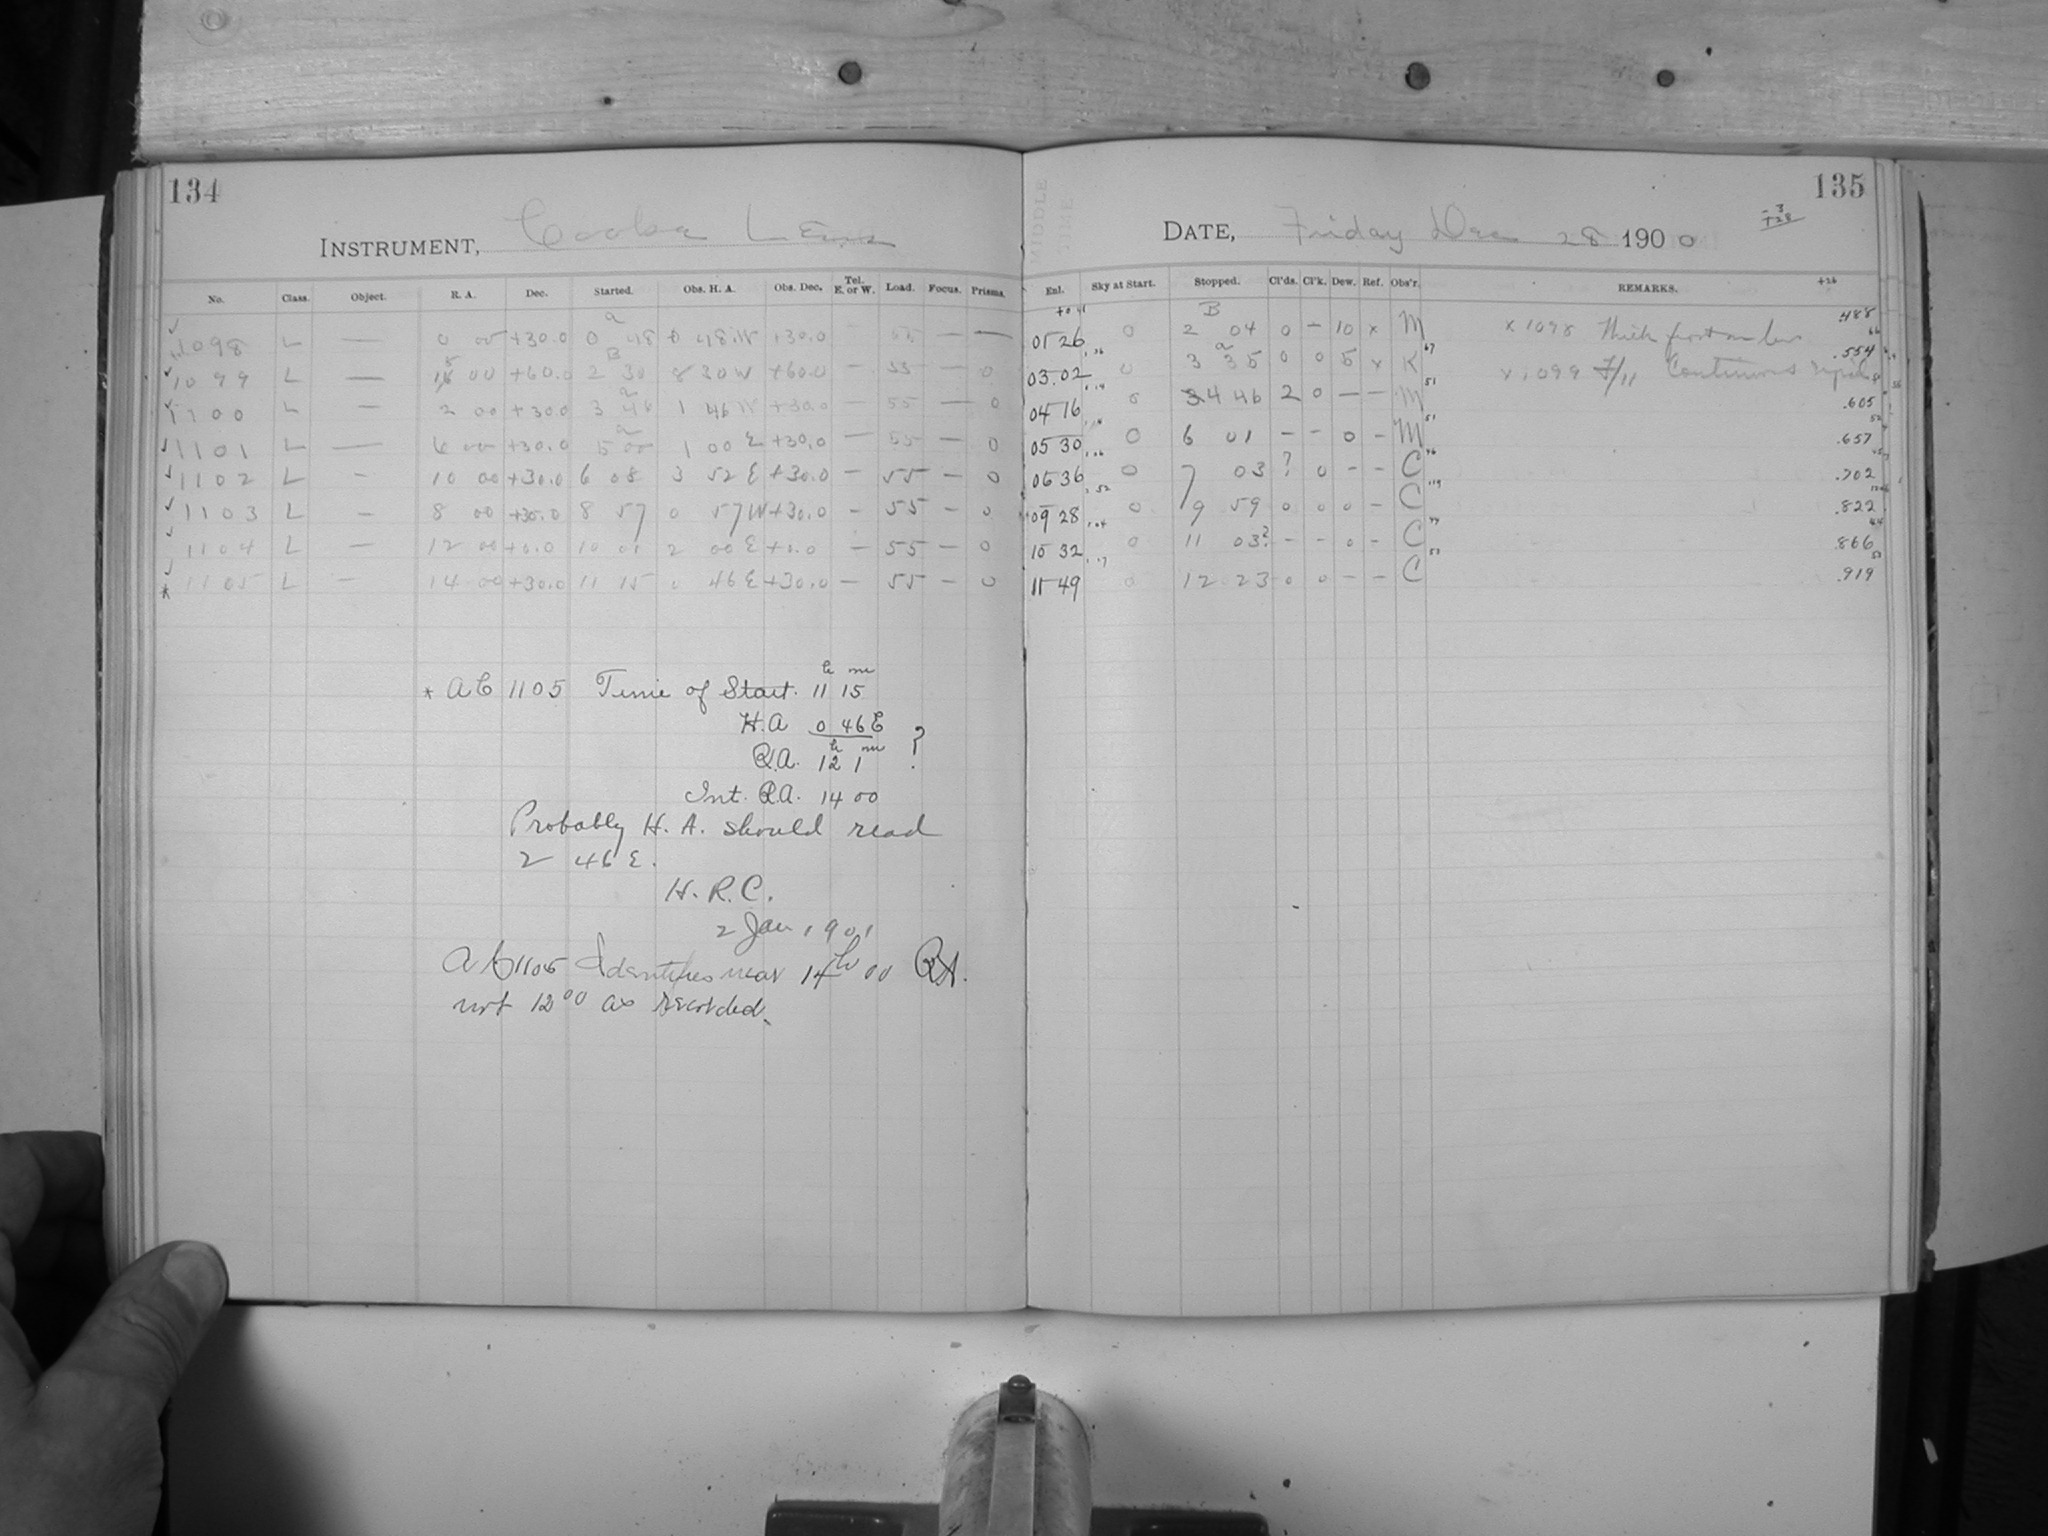 134
INSTRUMENT, Cooke Lens
No. Class. Object. R. A. Dec. Started. Obs. H. A. Obs. Dec. Tel. E. or W. Load. Focus. Prisms.
1098 L — 0 00 +30.0 0 48 0 48 W +30.0 — 55 — —
1099 L — 18 00 +60.0 2 30 8 30 W +60.0 — 55 — 0
1100 L — 2 00 +30.0 3 46 1 46 W +30.0 — 55 — 0
1101 L — 6 00 +30.0 5 00 1 00 E +30.0 — 55 — 0
1102 L — 10 00 +30.0 6 08 3 52 E +30.0 — 55 — 0
1103 L — 8 00 +30.0 8 57 0 57 W +30.0 — 55 — 0
1104 L — 12 00 +0.0 10 00 2 00 E +0.0 — 55 — 0
* 1105 L — 14 00 +30.0 11 15 0 46 E +30.0 — 55 — 0
* AC 1105 Time of Start. 11 h 15 m
H.A 0 46 E
R.A. 12 h 1 m ?
Int. R.A. 14 00
Probably H. A. should read
2 46 E.
H. R. C.
2 Jan 1901
AC 1105 Identifies near 14 h 00 RA.
not 12 00 as recorded.
135
DATE, Friday Dec 28 1900
-3
+28
Enl. Sky at Start. Stopped. Cl'ds. Cl'k. Dew. Ref. Obs'r. REMARKS. +26
01 26 0 2 04 0 — 10 x M x 1098 Thick frost on lens .488
03.02 0 3 35 0 0 5 x K x 1099 F/11 Continuous .554
04 16 0 4 46 2 0 — — M .605
05 30 0 6 01 — — 0 — M .657
06 36 0 7 03 ? 0 — — C .702
09 28 0 9 59 0 0 0 — C .822
10 32 0 11 03? — — 0 — C .866
11 49 0 12 23 0 0 — — C .919